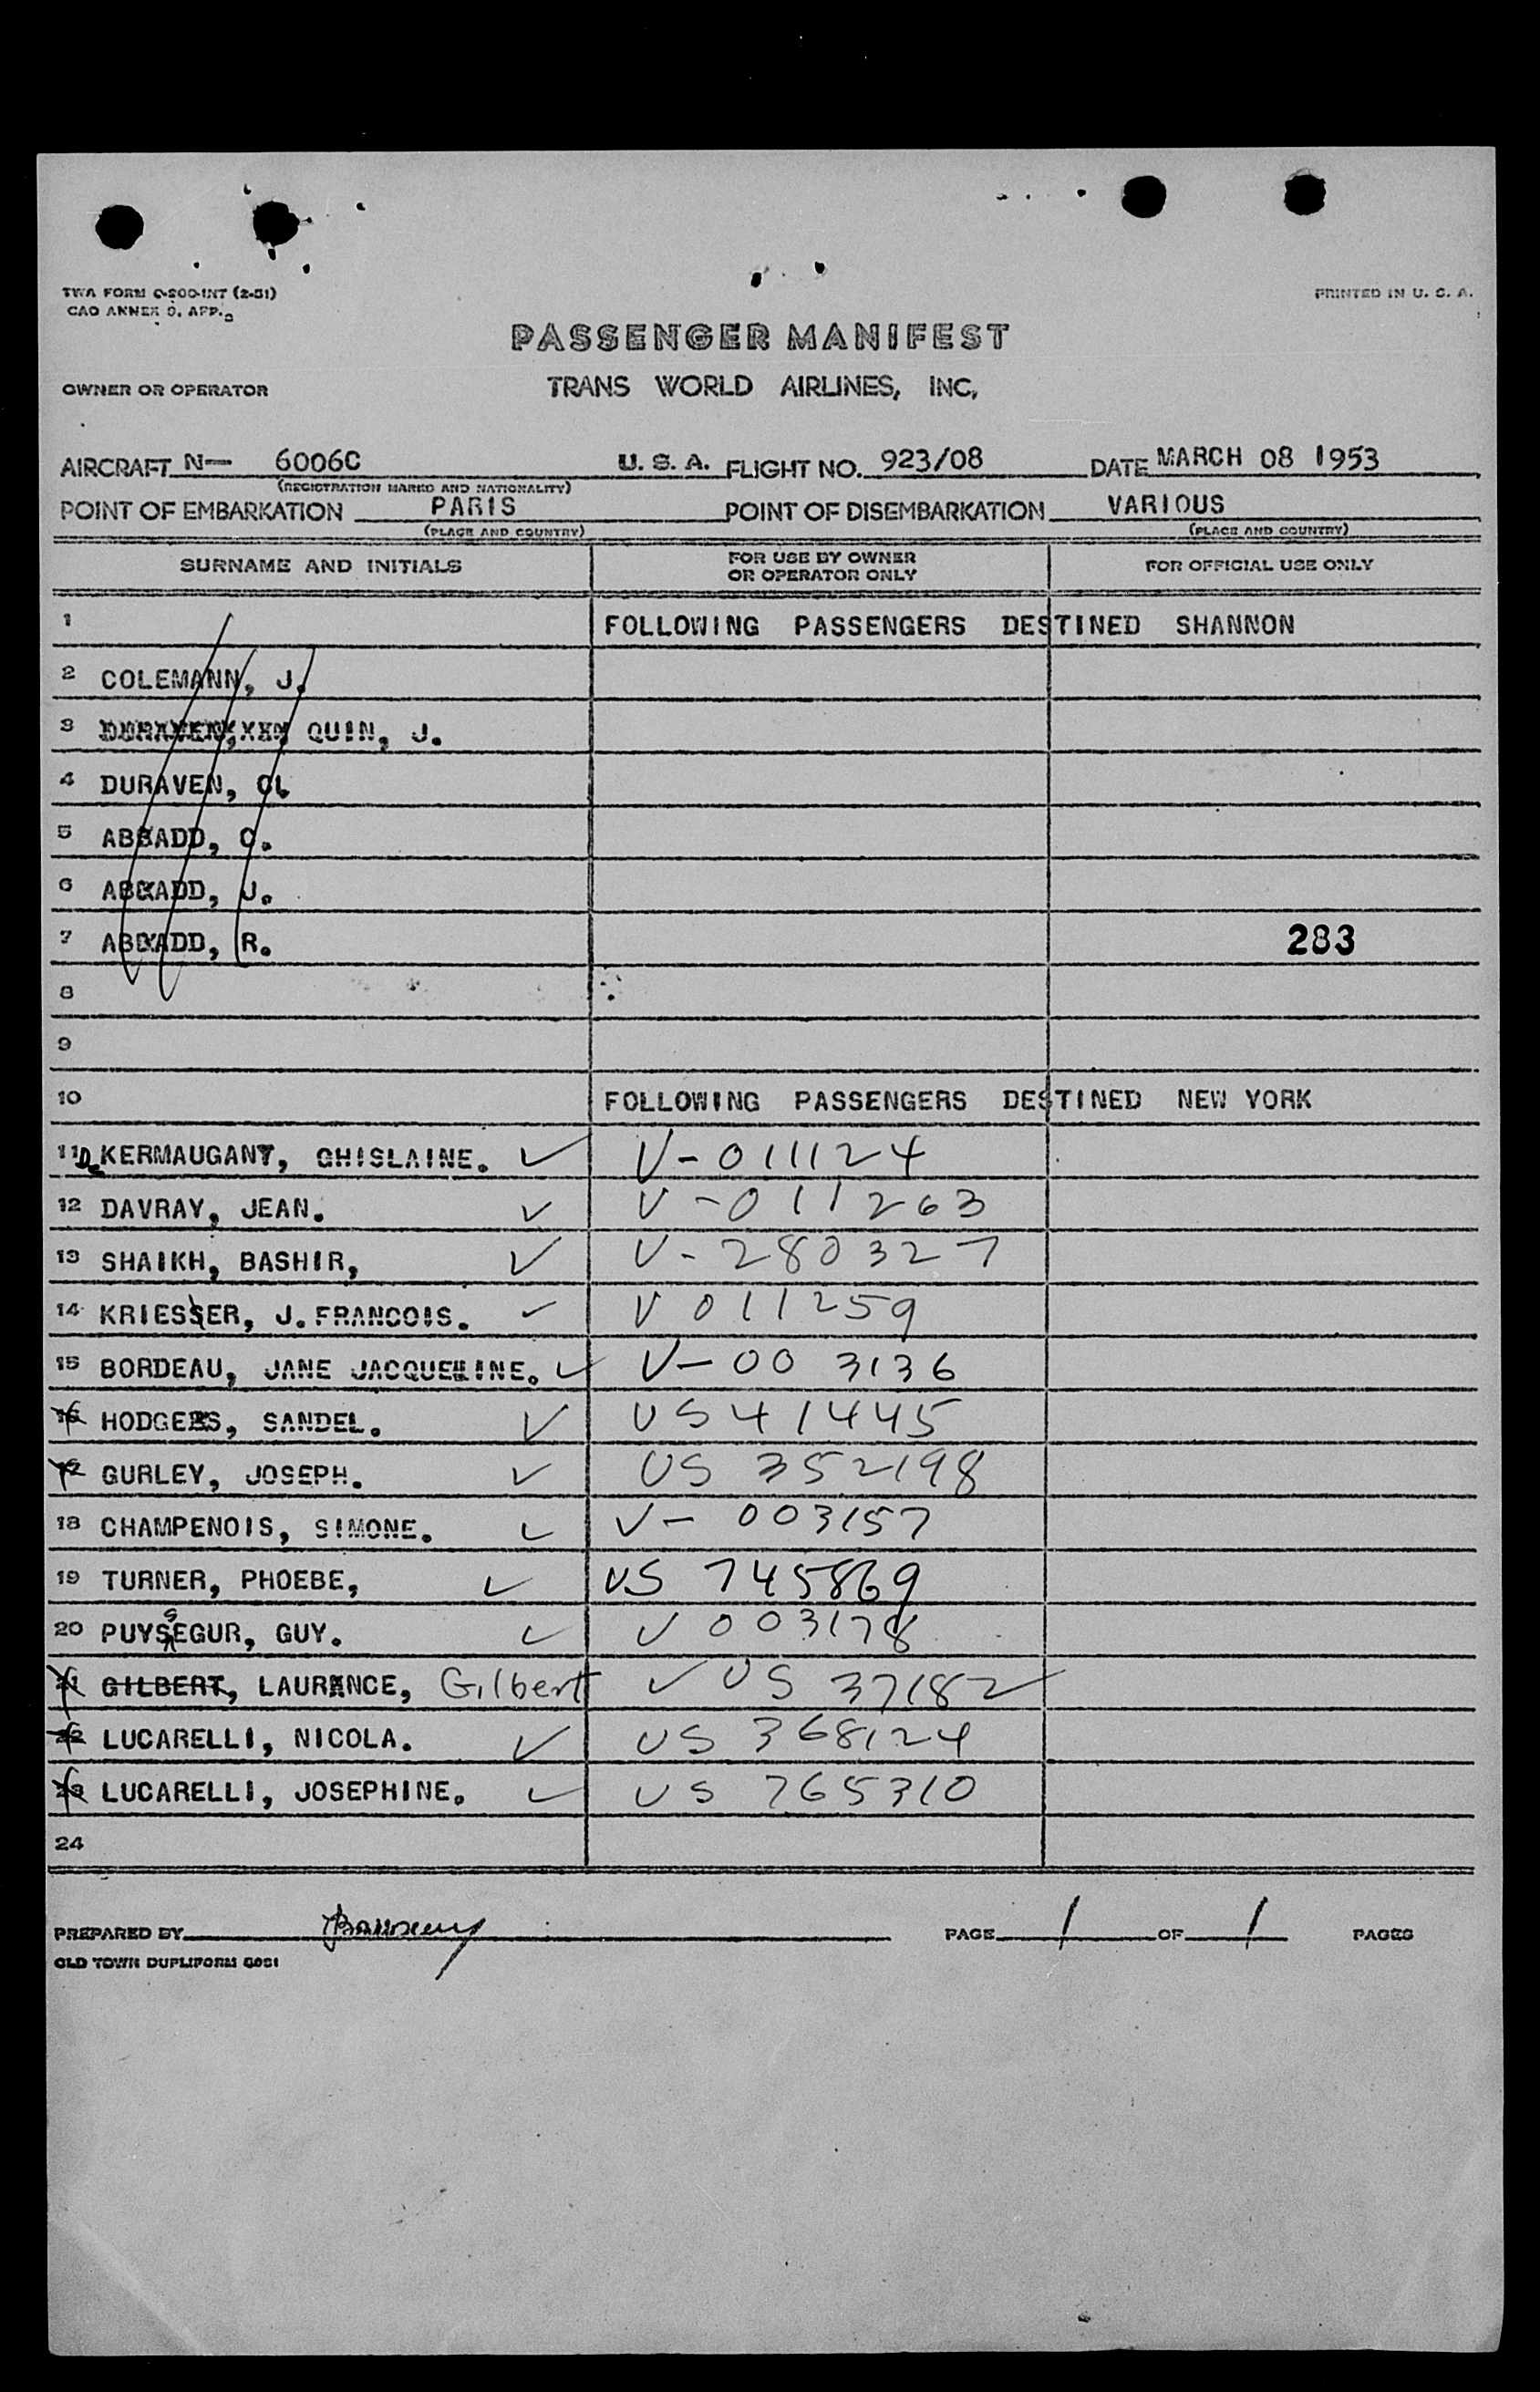 TWA FORM C-200-INT (2-51)
CAO ANNEX 9, APP.
PRINTED IN U. S. A.
PASSENGER MANIFEST
OWNER OR OPERATOR TRANS WORLD AIRLINES, INC,
AIRCRAFT N— 6006C U. S. A. FLIGHT NO. 923/08 DATE MARCH 08 1953
(REGISTRATION MARKS AND NATIONALITY)
POINT OF EMBARKATION PARIS POINT OF DISEMBARKATION VARIOUS
(PLACE AND COUNTRY) (PLACE AND COUNTRY)
SURNAME AND INITIALS FOR USE BY OWNER OR OPERATOR ONLY FOR OFFICIAL USE ONLY
1 FOLLOWING PASSENGERS DESTINED SHANNON
2 COLEMANN, J.
3 QUIN, J.
4 DURAVEN,
5 ABBADD, C.
6 J.
7 R. 283
8
9
10 FOLLOWING PASSENGERS DESTINED NEW YORK
11 De KERMAUGANT, GHISLAINE. ✓ V-011124
12 DAVRAY, JEAN. ✓ V-011263
13 SHAIKH, BASHIR, ✓ V-280327
14 KRIESSER, J. FRANCOIS. ✓ V 011259
15 BORDEAU, JANE JACQUELINE. ✓ V-00 3136
16 HODGERS, SANDEL. ✓ US 41445
17 GURLEY, JOSEPH. ✓ US 352198
18 CHAMPENOIS, SIMONE. ✓ V- 003157
19 TURNER, PHOEBE, ✓ US 745869
20 PUYSSEGUR, GUY. ✓ V 003178
21 GILBERT, LAURENCE, Gilbert ✓ US 37182
22 LUCARELLI, NICOLA. ✓ US 368124
23 LUCARELLI, JOSEPHINE. ✓ US 765310
24
PREPARED BY PAGE 1 OF 1 PAGES
OLD TOWN DUPLIFORM